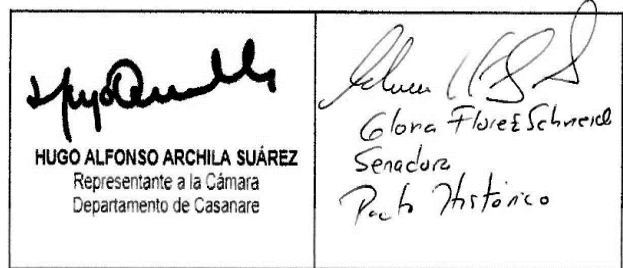 HUGO ALFONSO ARCHILA SUÁREZ
Representante a la Cámara
Departamento de Casanare
Gloria Flórez Schneid
Senadora
Pacto Histórico